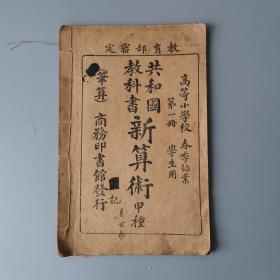 教育部審定
高等小學校 春季始業
第一冊 學生用
共和國
教科書
新算術甲種
筆算 商務印書館發行